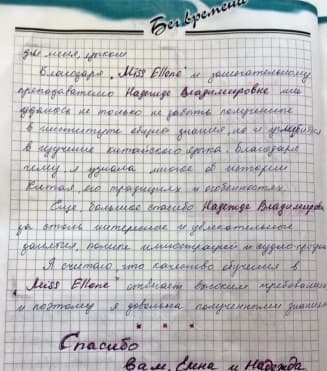 Бег времени
для меня, уроком
Благодаря "Miss Ellene" и замечательному
преподавателю Надежде Владимировне мне
удалось не только не забыть полученные
в институте общие знания, но и углубиться
в изучение китайского языка. Благодаря
чему я узнала многое об истории
Китая, его традициях и особенностях.
Еще, большое спасибо Надежде Владимировне
за столь интересное и увлекательное
занятия, помимо иллюстраций и аудио-
Я считаю, что качество обучения в
"Miss Ellene" отвечает высоким требованиям
и поэтому я довольна полученными знаниями
* * *
Спасибо
Вам, Елена и Надежда